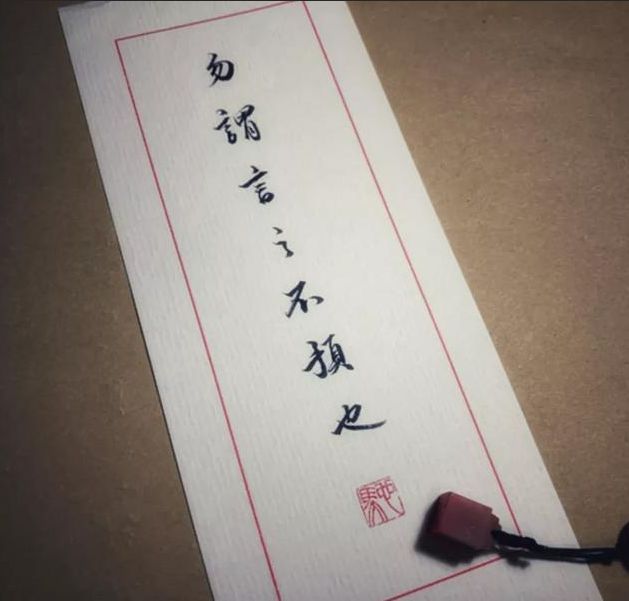 勿謂言之不預也